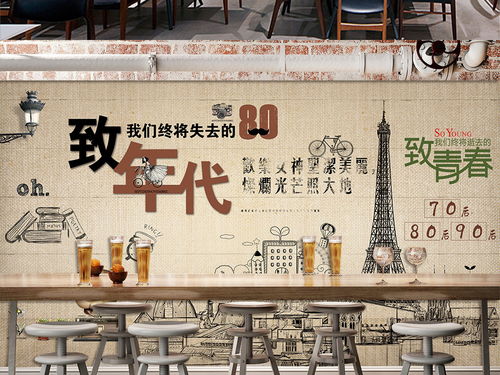 oh.
致
我们终将失去的
80
年代
歡樂女神聖潔美麗，
燦爛光芒照大地
SO YOUNG
我们终将逝去的
致青春
70后
80后 90后
RING!